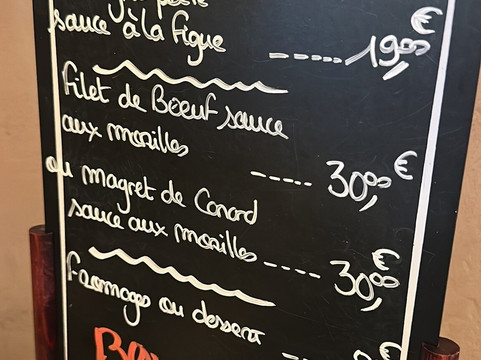 sauce à la Figue ----- 19,00 €
Filet de Bœuf sauce
aux morilles ---- 30,00 €
ou magret de Canard
sauce aux morilles ---- 30,00 €
Fromages ou dessert